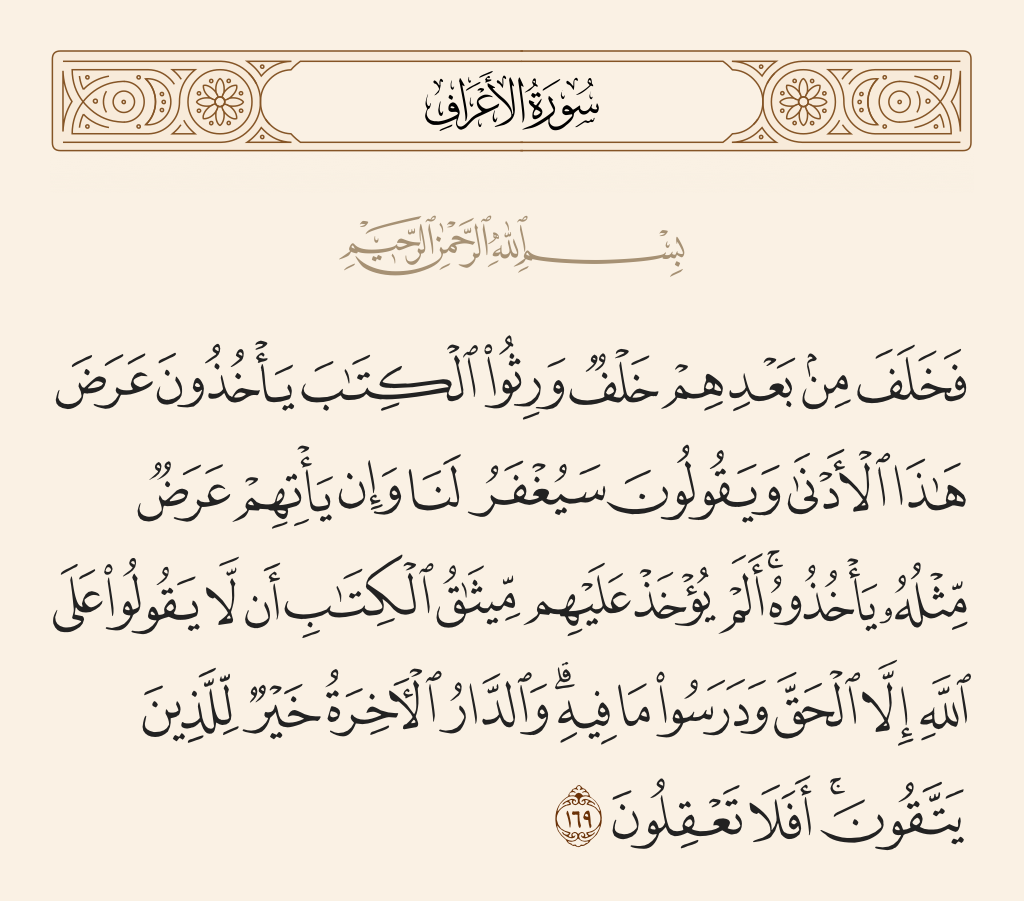 سُورَةُ الأَعْرَافِ
بِسْمِ ٱللَّهِ ٱلرَّحْمَٰنِ ٱلرَّحِيمِ
فَخَلَفَ مِنۢ بَعْدِهِمْ خَلْفٌ وَرِثُوا۟ ٱلْكِتَـٰبَ يَأْخُذُونَ عَرَضَ
هَـٰذَا ٱلْأَدْنَىٰ وَيَقُولُونَ سَيُغْفَرُ لَنَا وَإِن يَأْتِهِمْ عَرَضٌ
مِّثْلُهُۥ يَأْخُذُوهُ ۚ أَلَمْ يُؤْخَذْ عَلَيْهِم مِّيثَـٰقُ ٱلْكِتَـٰبِ أَن لَّا يَقُولُوا۟ عَلَى
ٱللَّهِ إِلَّا ٱلْحَقَّ وَدَرَسُوا۟ مَا فِيهِ ۗ وَٱلدَّارُ ٱلْـَٔاخِرَةُ خَيْرٌ لِّلَّذِينَ
يَتَّقُونَ ۚ أَفَلَا تَعْقِلُونَ ١٦٩